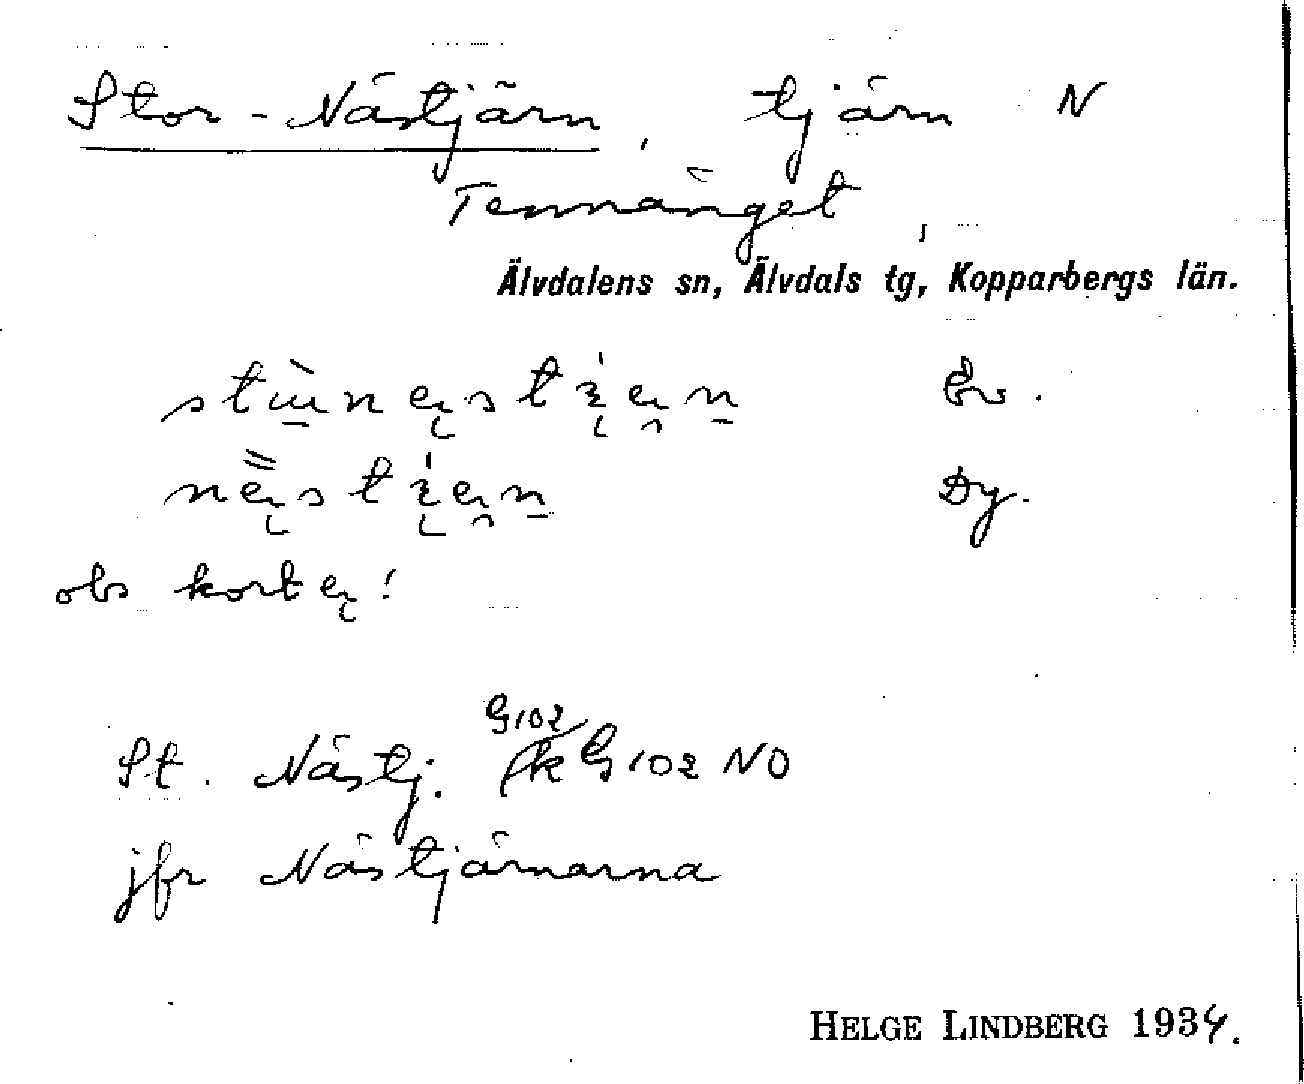 Stor-Nästjärn, tjärn N
Tennänget
Älvdalens sn, Älvdals tg, Kopparbergs län.
Ev.
Dy.
obs kort
St. Nästj. G102
fk G102 NO
jfr Nästjärnarna
HELGE LINDBERG 1934.